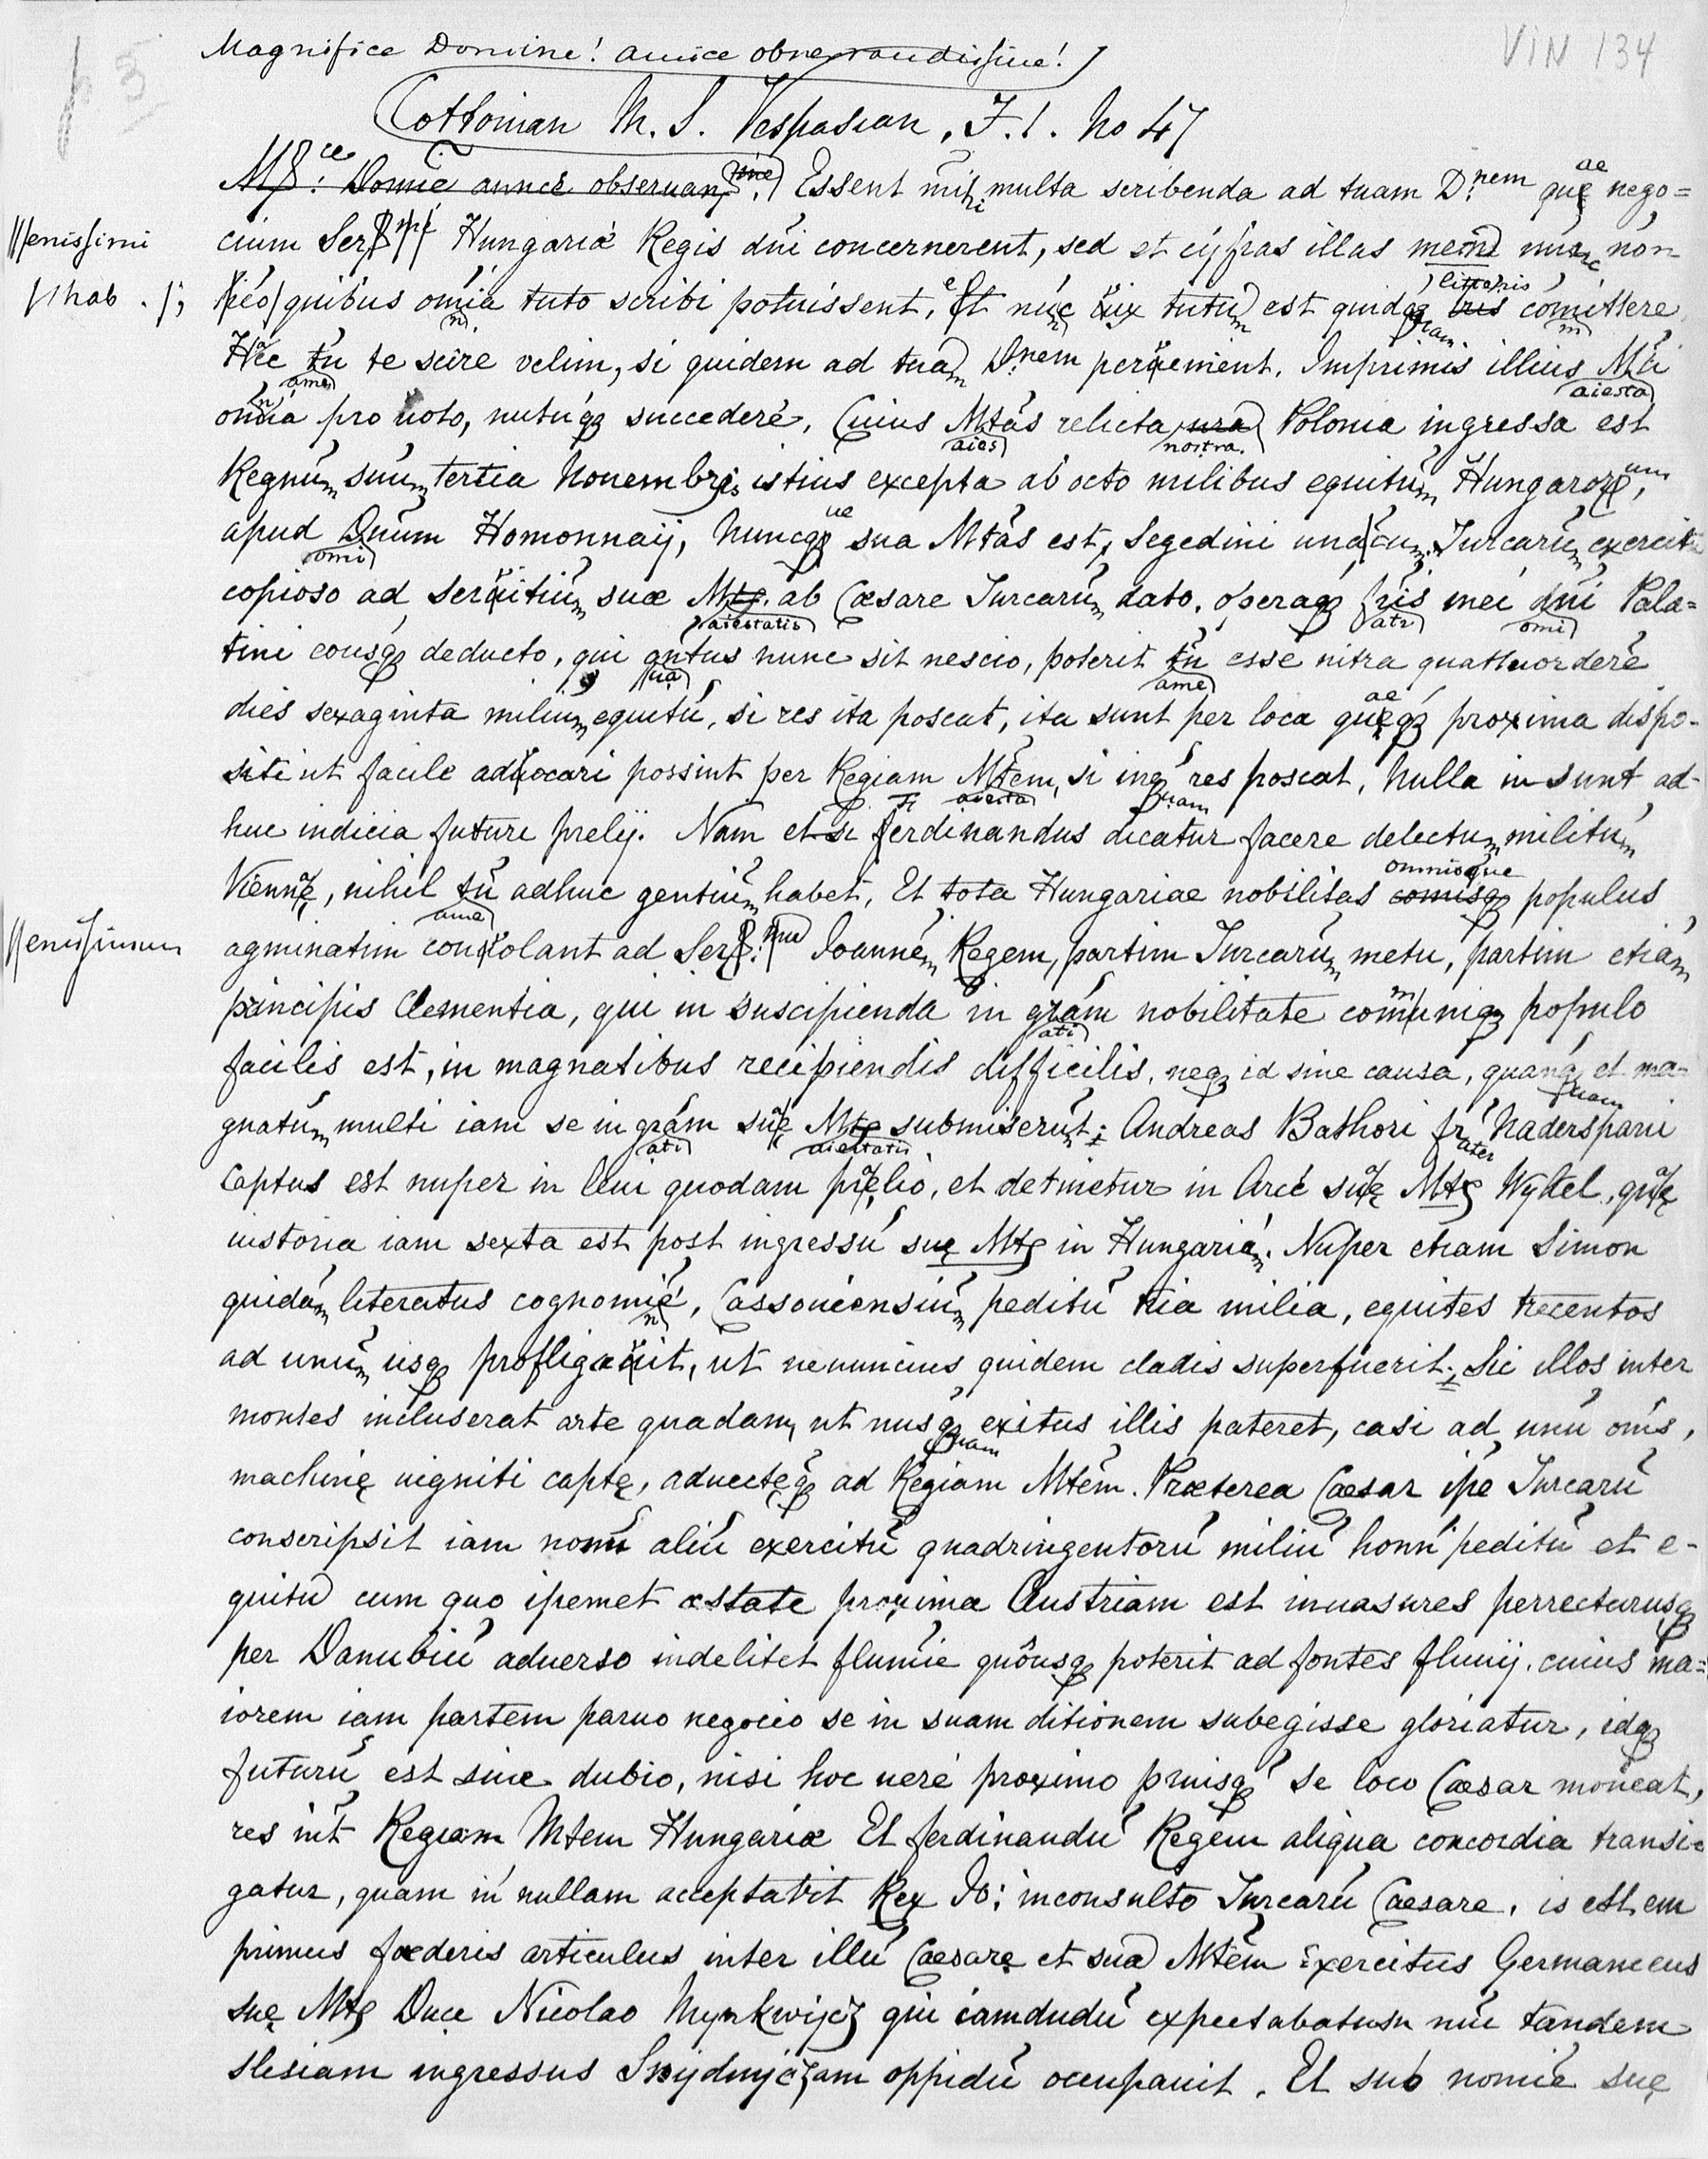 Magnifice Domine! amice observandissime!
VIN 134
Cottonian M. S. Vespasian. F. 1. No 47
Essent mihi multa scribenda ad tuam D.nem quae nego=
cium Hungariæ Regis dńi concernerent, sed et cyfras illas mecū nunc non
erenissimi
quibus omīa tuto scribi potuissent, Et nūc vix tutū est quidq̄ litteris comīttere
hab. /;
Hæc tn̄ te scire velim, si quidem ad tuam D.nem pervenient. Imprimis illius Mti
omnia pro uoto, nutuq̃ succedere. Cuius Mtas relicta nostra Polonia ingressa est
Regnum suum tertia Nouembris istius excepta ab octo milibus equitum Hungarorum,
apud Dnum Homonnaij, Nuncque sua Mtas est, Segedini una cum Turcarum exercitu
copioso ad seruitium suæ Mtis ab Cæsare Turcarum dato, operaq̃ fris mei dni Pala=
tini eousq̃ deducto, qui qntus nunc sit nescio, poterit tn̄ esse intra quattuordecē
dies sexaginta milium equitū, si res ita poscat, ita sunt per loca quæq̃ proxima dispo-
siti ut facile aduocari possint per Regiam Mtem, si inq̃ res poscat, Nulla in sunt ad-
huc indicia future prelij. Nam et si ferdinandus dicatur facere delectum militum
Viennę, nihil tn̄ adhuc gentium habet, Et tota Hungariae nobilitas omnisque populus
agminatim conuolant ad Joannem Regem, partim Turcarum metu, partim etiam
erenissimum
principis Clementia, qui in suscipienda in gratiam nobilitate comuniq̃ populo
facilis est, in magnatibus recipiendis difficilis, neq̃ id sine causa, quanq̃ et ma-
gnatum multi iam se in gratiam suę Mtis submiserunt: Andreas Bathori frater Nadersparii
Captus est nuper in leui quodam prælio, et detinetur in Arce suę Mtę Wytel, quę
uictoria iam sexta est post ingressū suę Mtę in Hungariam. Nuper etiam Simon
quidam literatus cognomie, Cassouiensium peditū tria milia, equites trecentos
ad unum usq̃ profligauit, ut ne nuncius quidem cladis superfuerit; Sic illos inter
montes incluserat arte quadam, ut nusq̃ exitus illis pateret, casi ad unū omīs,
machinę uiginti captę, aduectęq̃ ad Regiam Mtem. Præterea Cæsar ipe Turcarū
conscripsit iam nouū aliū exercitū quadringentorū miliū homin̄ peditū et e-
quitū cum quo ipemet æstate proxima Austriam est inuasures perrecturusq̃
per Danubiū aduerso indelitet flumie quousq̃ poterit ad fontes fluuij, cuius ma=
iorem iam partem paruo negocio se in suam ditionem subegisse gloriatur, idq̃
futurū est sine dubio, nisi hoc uere proximo priusq̃ se loco Cæsar moueat,
res int̄ Regiam Mtem Hungariæ Et ferdinandū Regem aliqua concordia transi-
gatur, quam in nullam acceptabit Rex Jo: inconsulto Turcarū Caesare, is est em
primus fœderis articulus inter illū Caesarę et suā Mtem Exercitus Germanicus
suę Mtę Duce Nicolao Mynkwijcz qui iamdudū expectabatur nūc tandem
slesiam ingressus Snijdnyczam oppidū occupauit. Et sub nomie suę